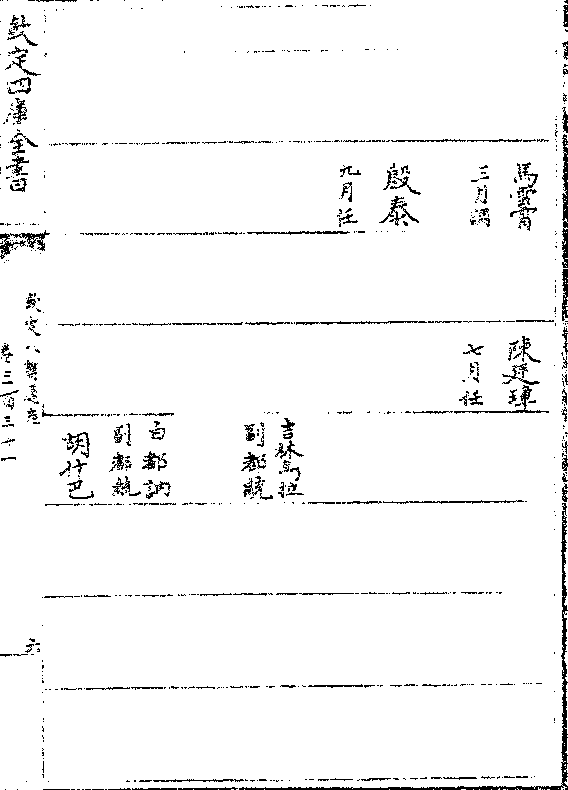 馬雲霄
三月調
殷泰
九月任
陳廷
七月任
吉林烏拉
副都統
白都訥
副都統
胡什巴
欽定四庫全書
欽定八旗通志
卷三百三十一
六